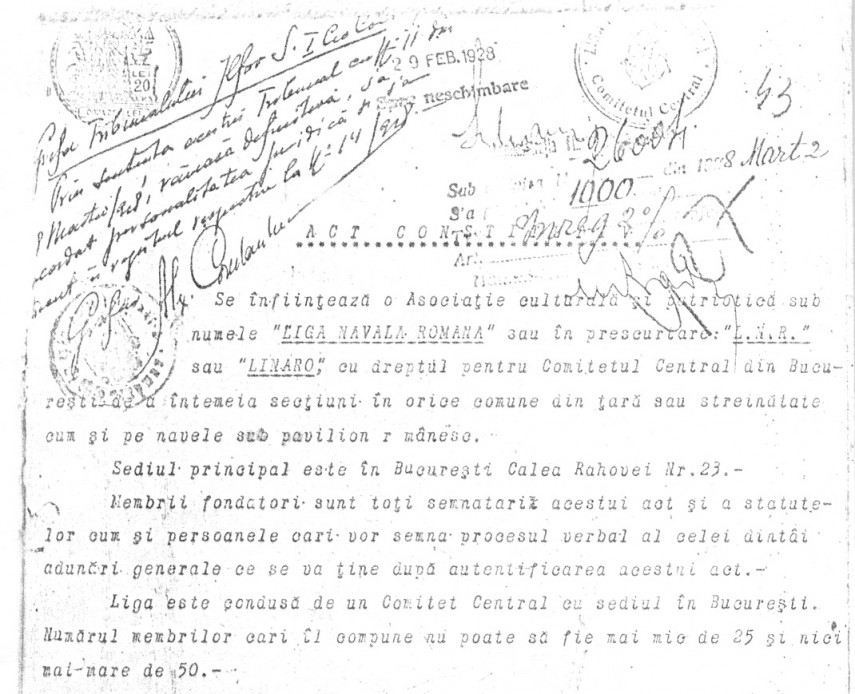 Grefa Tribunalului Ilfov S. I
Prin sentința acestui Tribunal cu № 11 din
8 Martie/928, rămasă definitivă, s'a
acordat personalitatea juridică și s'a
în registrul respectiv la № 14/928
Grefier
LEI
20
29 FEB. 1928
Spre neschimbare
Liga
Comitetul Central
43
2600
din 1928 Mart 2
Sub
1000
S'a
ACT CONST
Se înființează o Asociație culturală și patriotică sub
numele "LIGA NAVALA ROMANA" sau în prescurtare: "L.N.R."
sau "LINARO", cu dreptul pentru Comitetul Central din Bucu-
rești de a întemeia secțiuni în orice comune din țară sau streinătate
cum și pe navele sub pavilion r mânesc.
Sediul principal este în București Calea Rahovei Nr.23.-
Membrii fondatori sunt toți semnatarii acestui act și a statute-
lor cum și persoanele cari vor semna procesul verbal al celei dintâi
adunări generale ce se va ține după autentificarea acestui act.-
Liga este condusă de un Comitet Central cu sediul în București.
Numărul membrilor cari îl compune nu poate să fie mai mic de 25 și nici
mai mare de 50.-